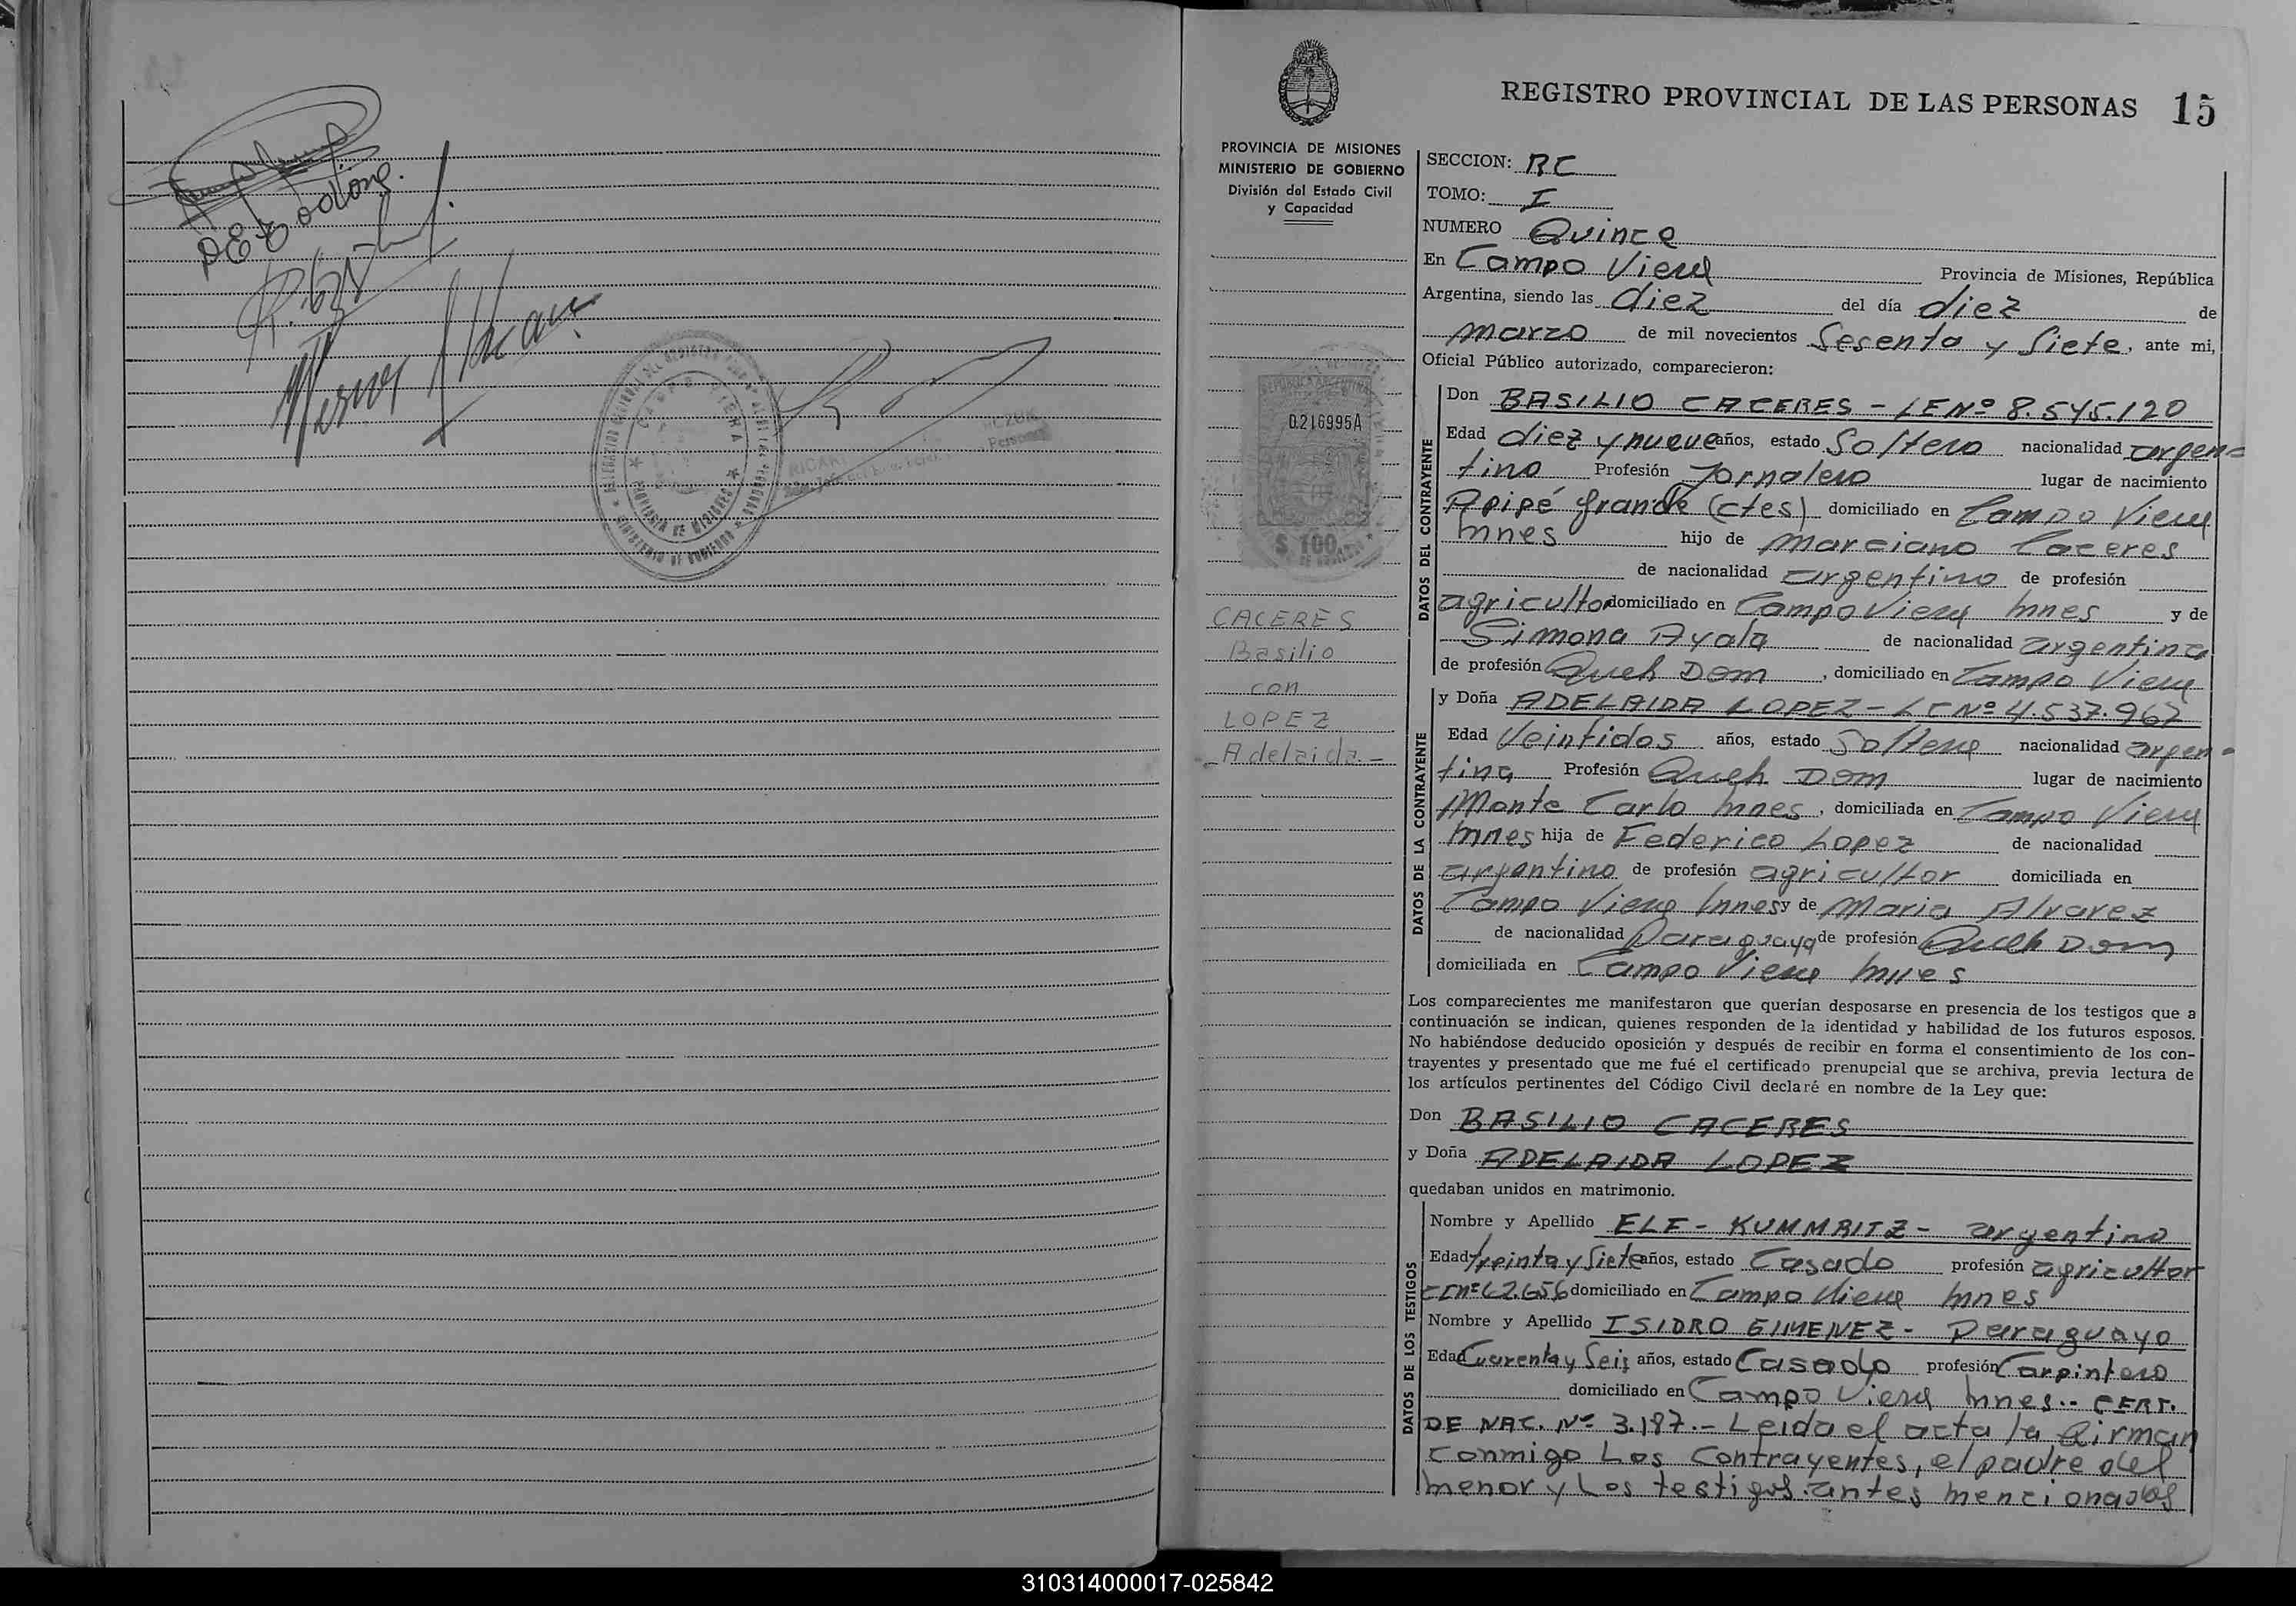 REGISTRO PROVINCIAL DE LAS PERSONAS 15
PROVINCIA DE MISIONES
MINISTERIO DE GOBIERNO
División del Estado Civil
y Capacidad
0.216995A
$ 100
CACERES
Basilio
con
LOPEZ
Adelaida.-
SECCION: RC
TOMO: I
NUMERO Quince
En Campo Viera Provincia de Misiones, República
Argentina, siendo las diez del día diez de
marzo de mil novecientos Sesenta y Siete, ante mi,
Oficial Público autorizado, comparecieron:
DATOS DEL CONTRAYENTE
Don BASILIO CACERES - LE Nº 8.545.120
Edad diez y nueve años, estado Soltero nacionalidad argen=
tino Profesión Jornalero lugar de nacimiento
Apipé Grande (ctes) domiciliado en Campo Viera
Mnes hijo de Marciano Caceres
de nacionalidad argentino de profesión
agricultor domiciliado en Campo Viera Mnes y de
Simona Ayala de nacionalidad argentina
de profesión Queh Dom, domiciliado en Campo Viera
DATOS DE LA CONTRAYENTE
y Doña ADELAIDA LOPEZ - LC Nº 4.537.967
Edad Veintidos años, estado Soltera nacionalidad argen=
tina Profesión Queh Dom lugar de nacimiento
Monte Carlo Mnes, domiciliada en Campo Viera
Mnes hija de Federico Lopez de nacionalidad
argentino de profesión agricultor domiciliada en
Campo Viera Mnes y de Maria Alvarez
de nacionalidad Paraguaya de profesión Queh Dom
domiciliada en Campo Viera Mnes
Los comparecientes me manifestaron que querían desposarse en presencia de los testigos que a
continuación se indican, quienes responden de la identidad y habilidad de los futuros esposos.
No habiéndose deducido oposición y después de recibir en forma el consentimiento de los con-
trayentes y presentado que me fué el certificado prenupcial que se archiva, previa lectura de
los artículos pertinentes del Código Civil declaré en nombre de la Ley que:
Don BASILIO CACERES
y Doña ADELAIDA LOPEZ
quedaban unidos en matrimonio.
DATOS DE LOS TESTIGOS
Nombre y Apellido ELF - KUMMRITZ - argentino
Edad treinta y Siete años, estado Casado profesión agricultor
domiciliado en Campo Viera Mnes
Nombre y Apellido ISIDRO GIMENEZ - Paraguayo
Edad Cuarenta y Seis años, estado Casado profesión Carpintero
domiciliado en Campo Viera Mnes.- CERT.
DE NAC. Nº 3.187.- Leida el acta la firman
conmigo Los Contrayentes, el padre del
menor y Los testigos antes mencionados
310314000017-025842